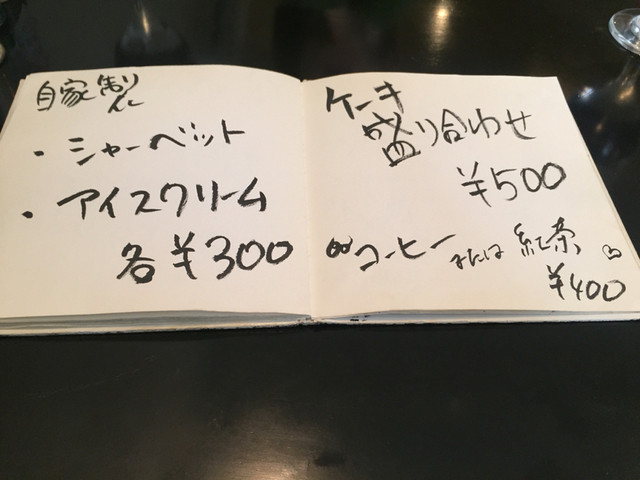 自家製
・シャーベット
・アイスクリーム
各¥300
ケーキ
盛り合わせ
¥500
コーヒーまたは紅茶
¥400